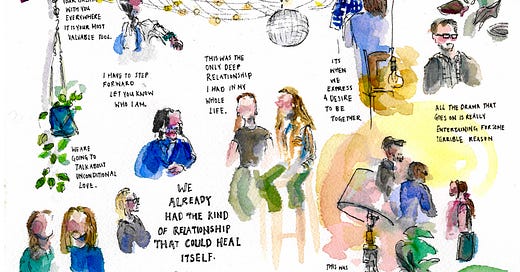 WITH YOU
EVERYWHERE
IT IS YOUR MOST
VALUABLE TOOL.
I HAVE TO STEP
FORWARD
LET YOU KNOW
WHO I AM.
THIS WAS THE
ONLY DEEP
RELATIONSHIP
I HAD IN MY
WHOLE
LIFE.
ITS
WHEN WE
EXPRESS
A DESIRE
TO BE
TOGETHER
ALL THE DRAMA THAT
GOES ON IS REALLY
ENTERTAINING FOR SOME
TERRIBLE REASON
WE ARE
GOING TO
TALK ABOUT
UNCONDITIONAL
LOVE.
WE
ALREADY
HAD THE KIND
OF RELATIONSHIP
THAT COULD HEAL
ITSELF.
THIS WAS